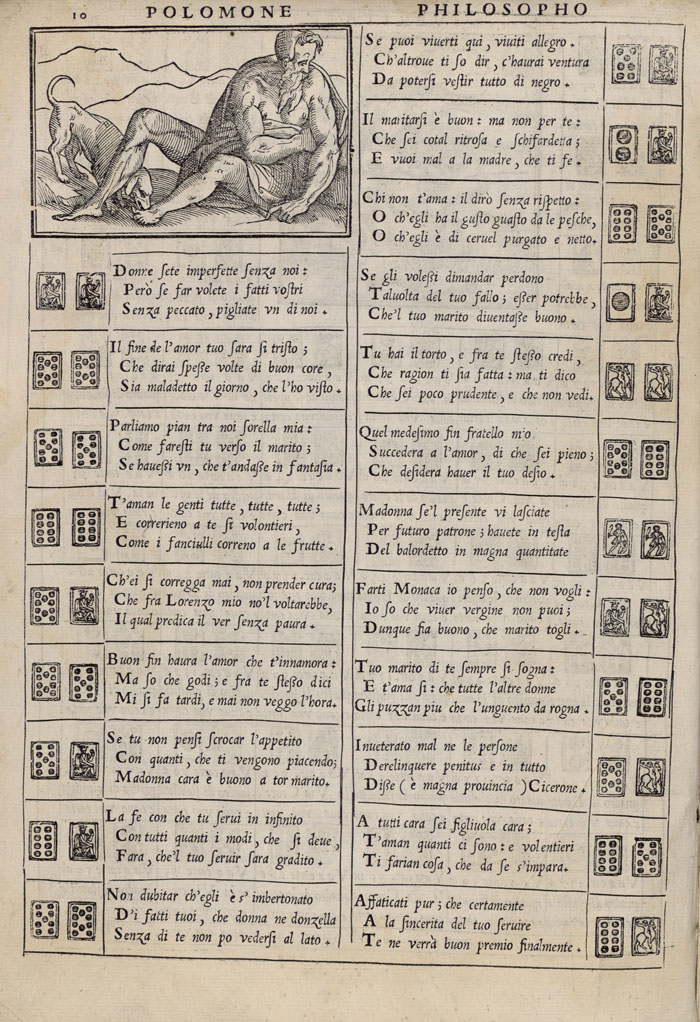 10 POLOMONE PHILOSOPHO
Donne sete imperfette senza noi:
Però se far volete i fatti vostri
Senza peccato, pigliate vn di noi.
Il fine de l'amor tuo sara si tristo;
Che dirai spesse volte di buon core,
Sia maladetto il giorno, che l'ho visto.
Parliamo pian tra noi sorella mia:
Come faresti tu verso il marito;
Se hauessi vn, che t'andasse in fantasia.
T'aman le genti tutte, tutte, tutte;
E correrieno a te si volontieri,
Come i fanciulli correno a le frutte.
Ch'ei si corregga mai, non prender cura;
Che fra Lorenzo mio no'l voltarebbe,
Il qual predica il ver senza paura.
Buon fin haura l'amor che t'innamora:
Ma so che godi; e fra te stesso dici
Mi si fa tardi, e mai non veggo l'hora.
Se tu non pensi scrocar l'appetito
Con quanti, che ti vengono piacendo;
Madonna cara è buono a tor marito.
La fe con che tu serui in infinito
Con tutti quanti i modi, che si deue,
Fara, che'l tuo seruir sara gradito.
Non dubitar ch'egli è s'imbertonato
D'i fatti tuoi, che donna ne donzella
Senza di te non po vedersi al lato.
Se puoi viuerti qui, viuiti allegro.
Ch'altroue ti so dir, c'haurai ventura
Da potersi vestir tutto di negro.
Il maritarsi è buon: ma non per te:
Che sei cotal ritrosa e schifardetta;
E vuoi mal a la madre, che ti fe.
Chi non t'ama: il dirò senza rispetto:
O ch'egli ha il gusto guasto da le pesche,
O ch'egli è di ceruel purgato e netto.
Se gli volessi dimandar perdono
Taluolta del tuo fallo; esser potrebbe,
Che'l tuo marito diuentasse buono.
Tu hai il torto, e fra te stesso credi,
Che ragion ti sia fatta: ma ti dico
Che sei poco prudente, e che non vedi.
Quel medesimo fin fratello mio
Succedera a l'amor, di che sei pieno;
Che desidera hauer il tuo desio.
Madonna se'l presente vi lasciate
Per futuro patrone; hauete in testa
Del balordetto in magna quantitate
Farti Monaca io penso, che non vogli:
Io so che viuer vergine non puoi;
Dunque fia buono, che marito togli.
Tuo marito di te sempre si sogna:
E t'ama si: che tutte l'altre donne
Gli puzzan piu che l'unguento da rogna.
Inueterato mal ne le persone
Derelinquere penitus e in tutto
Disse (è magna prouincia) Cicerone.
A tutti cara sei figliuola cara;
T'aman quanti ci sono: e volentieri
Ti farian cosa, che da se s'impara.
Affaticati pur; che certamente
A la sincerita del tuo seruire
Te ne verrà buon premio finalmente.